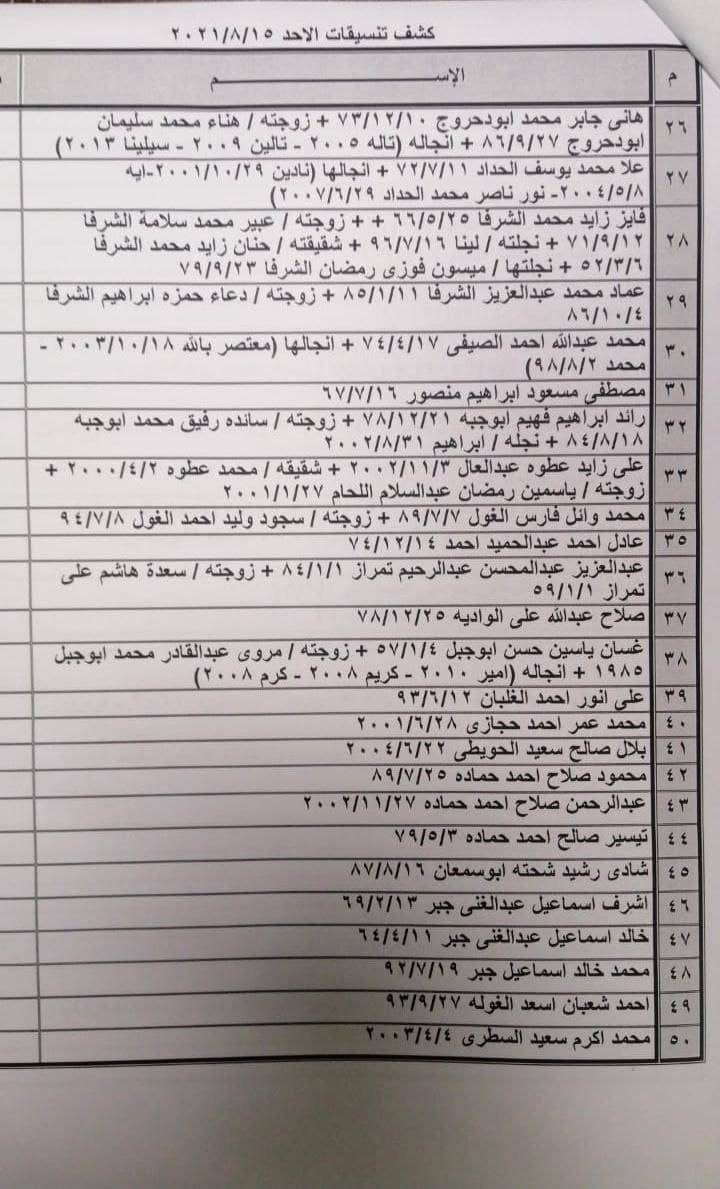 كشف تنسيقات الاحد ٢٠٢١/٨/١٥
م الإســـــم
٢٦ هانى جابر محمد ابودحروج ٧٣/١٢/١٠ + زوجته / هناء محمد سليمان
ابودحروج ٨٦/٩/٢٧ + انجاله (تاله ٢٠٠٥ - تالين ٢٠٠٩ - سيلينا ٢٠١٣)
٢٧ علا محمد يوسف الحداد ٧٢/٧/١١ + انجالها (نادين ٢٠٠١/١٠/٢٩-ايه
٢٠٠٤/٥/٨- نور ناصر محمد الحداد ٢٠٠٧/٦/٢٩)
٢٨ فايز زايد محمد الشرفا ٦٦/٥/٢٥ + + زوجته / عبير محمد سلامة الشرفا
٧١/٩/١٢ + نجلته / لينا ٩٦/٧/١٦ + شقيقته / حنان زايد محمد الشرفا
٥٢/٣/٦ + نجلتها / ميسون فوزى رمضان الشرفا ٧٩/٩/٢٣
٢٩ عماد محمد عبدالعزيز الشرفا ٨٥/١/١١ + زوجته / دعاء حمزه ابراهيم الشرفا
٨٦/١٠/٤
٣٠ محمد عبدالله احمد الصيفى ٧٤/٤/١٧ + انجالها (معتصر بالله ٢٠٠٣/١٠/١٨ -
محمد ٩٨/٨/٢)
٣١ مصطفى مسعود ابراهيم منصور ٦٧/٧/١٦
٣٢ رائد ابراهيم فهيم ابوجبه ٧٨/١٢/٢١ + زوجته / سانده رفيق محمد ابوجبه
٨٤/٨/١٨ + نجله / ابراهيم ٢٠٠٢/٨/٣١
٣٣ على زايد عطوه عبدالعال ٢٠٠٢/١١/٣ + شقيقه / محمد عطوه ٢٠٠٠/٤/٢ +
زوجته / ياسمين رمضان عبدالسلام اللحام ٢٠٠١/١/٢٧
٣٤ محمد وائل فارس الغول ٨٩/٧/٧ + زوجته / سجود وليد احمد الغول ٩٤/٧/٨
٣٥ عادل احمد عبدالحميد احمد ٧٤/١٢/١٤
٣٦ عبدالعزيز عبدالمحسن عبدالرحيم تمراز ٨٤/١/١ + زوجته / سعدة هاشم على
تمراز ٥٩/١/١
٣٧ صلاح عبدالله على الواديه ٧٨/١٢/٢٥
٣٨ غسان ياسين حسن ابوجبل ٥٧/١/٤ + زوجته / مروى عبدالقادر محمد ابوجبل
١٩٨٥ + انجاله (امير ٢٠١٠ - كريم ٢٠٠٨ - كرم ٢٠٠٨)
٣٩ على انور احمد الغلبان ٩٣/٦/١٢
٤٠ محمد عمر احمد حجازى ٢٠٠١/٦/٢٨
٤١ بلال صالح سعيد الحويطى ٢٠٠٤/٦/٢٢
٤٢ محمود صلاح احمد حماده ٨٩/٧/٢٥
٤٣ عبدالرحمن صلاح احمد حماده ٢٠٠٢/١١/٢٧
٤٤ تيسير صالح احمد حماده ٧٩/٥/٣
٤٥ شادى رشيد شحته ابوسمعان ٨٧/٨/١٦
٤٦ اشرف اسماعيل عبدالغنى جبر ٦٩/٢/١٣
٤٧ خالد اسماعيل عبدالغنى جبر ٦٤/٤/١١
٤٨ محمد خالد اسماعيل جبر ٩٢/٧/١٩
٤٩ احمد شعبان اسعد الغوله ٩٣/٩/٢٧
٥٠ محمد اكرم سعيد السطرى ٢٠٠٣/٤/٤